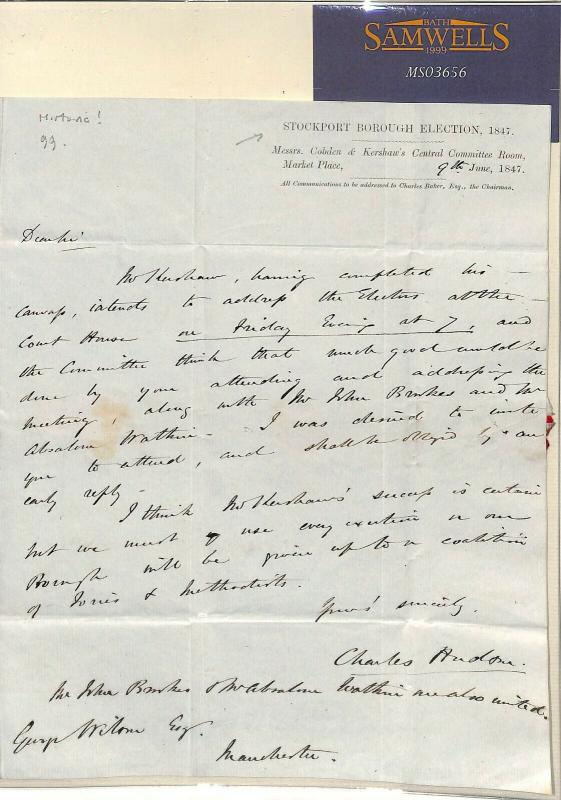 BATH
SAMWELLS
1999
MS03656
Historic!
99.
STOCKPORT BOROUGH ELECTION, 1847.
Messrs. Cobden & Kershaw's Central Committee Room,
Market Place, 9th June, 1847.
All Communications to be addressed to Charles Baker, Esq., the Chairman.
Dear Sir
Mr Kershaw, having completed his
canvass, intends to address the Electors at the
Court House on Friday Evening at 7, and
the Committee think that much good would be
done by your attending and addressing the
meeting, along with Mr John Brookes and Mr
Absalom Watkin. I was desired to invite
you to attend, and shall be obliged by an
early reply.
I think Mr Kershaw's success is certain
but we must use every exertion or our
Borough will be given up to a coalition
of Tories & Methodists.
Yours sincerely,
Charles Hudson.
Mr John Brookes & Mr Absalom Watkin are also invited.
George Wilson Esq.
Manchester.